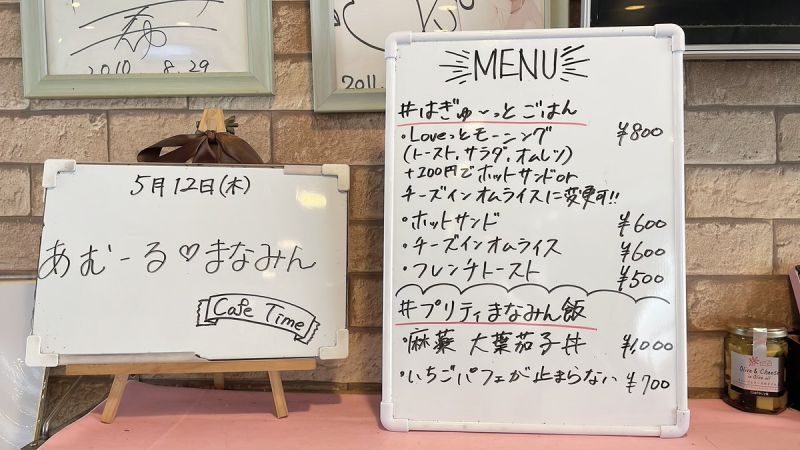 2010. 8.29
2011.
5月12日(木)
あむーる♡まなみん
Cafe Time
MENU
#はぎゅ〜っとごはん
・Loveっとモーニング ¥800
(トースト,サラダ,オムレツ)
+200円でホットサンドor
チーズインオムライスに変更可!!
・ホットサンド ¥600
・チーズインオムライス ¥600
・フレンチトースト ¥500
#プリティまなみん飯
・麻薬 大葉茄子丼 ¥1,000
・いちごパフェが止まらない ¥700
Olive & Cheese
in Olive oil